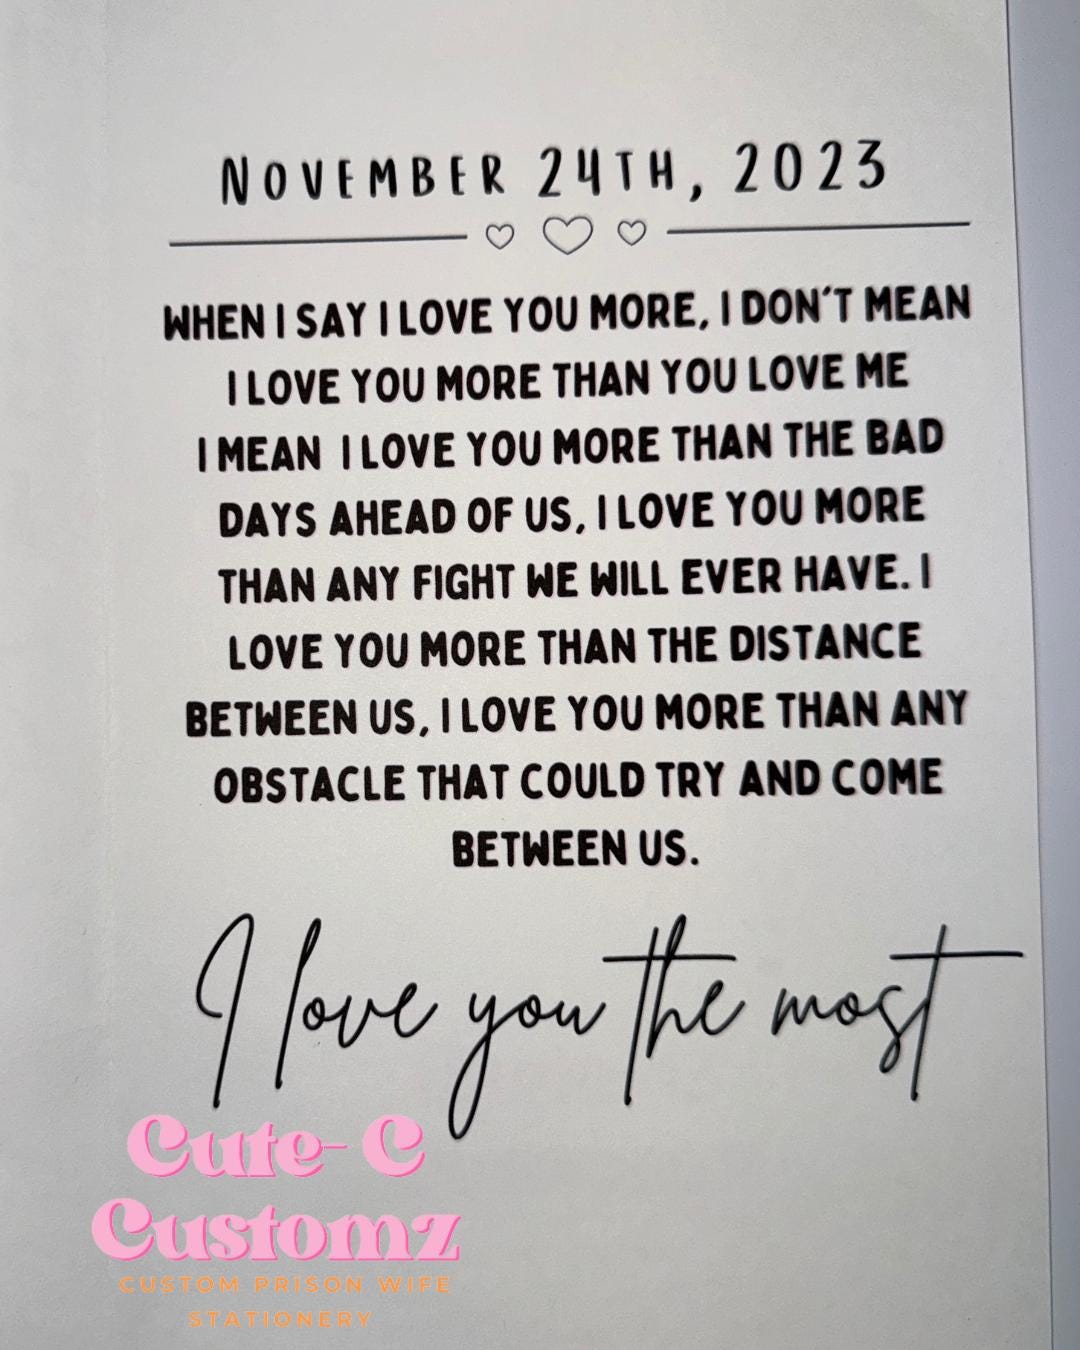 NOVEMBER 24TH, 2023
WHEN I SAY I LOVE YOU MORE, I DON'T MEAN
I LOVE YOU MORE THAN YOU LOVE ME
I MEAN I LOVE YOU MORE THAN THE BAD
DAYS AHEAD OF US, I LOVE YOU MORE
THAN ANY FIGHT WE WILL EVER HAVE. I
LOVE YOU MORE THAN THE DISTANCE
BETWEEN US, I LOVE YOU MORE THAN ANY
OBSTACLE THAT COULD TRY AND COME
BETWEEN US.
I love you the most
Cute-C
Customz
CUSTOM PRISON WIFE
STATIONERY